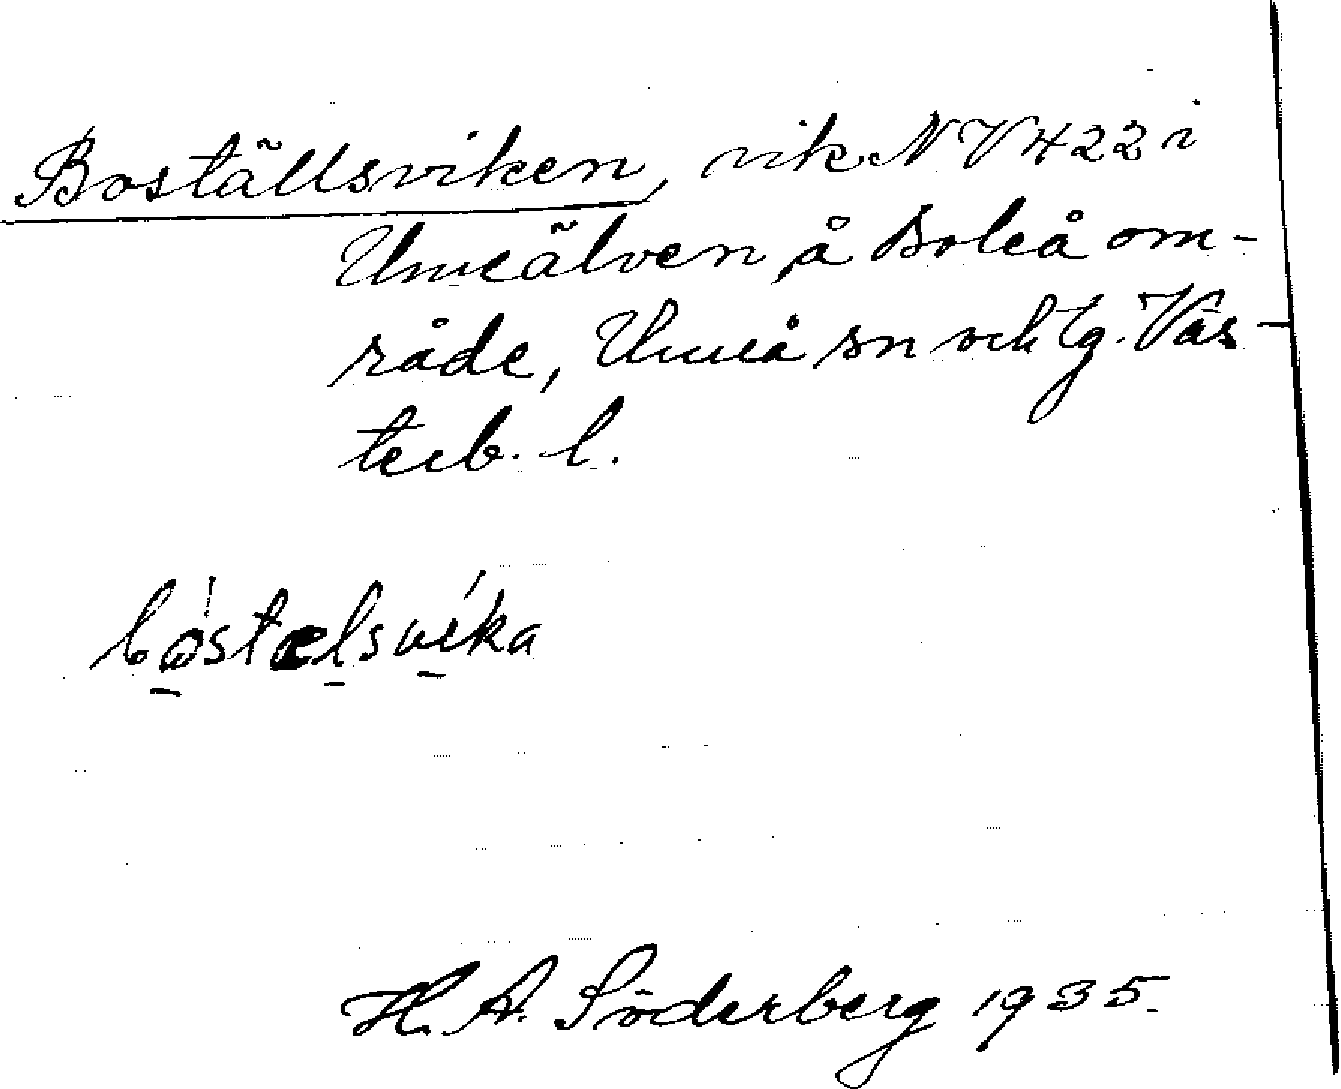 Boställsviken, vik NV 422 i
Umeälven å Boleå om-
råde, Umeå sn och tg. Väs-
terb. l.
bòstælsvíka
H. A. Söderberg 1935.